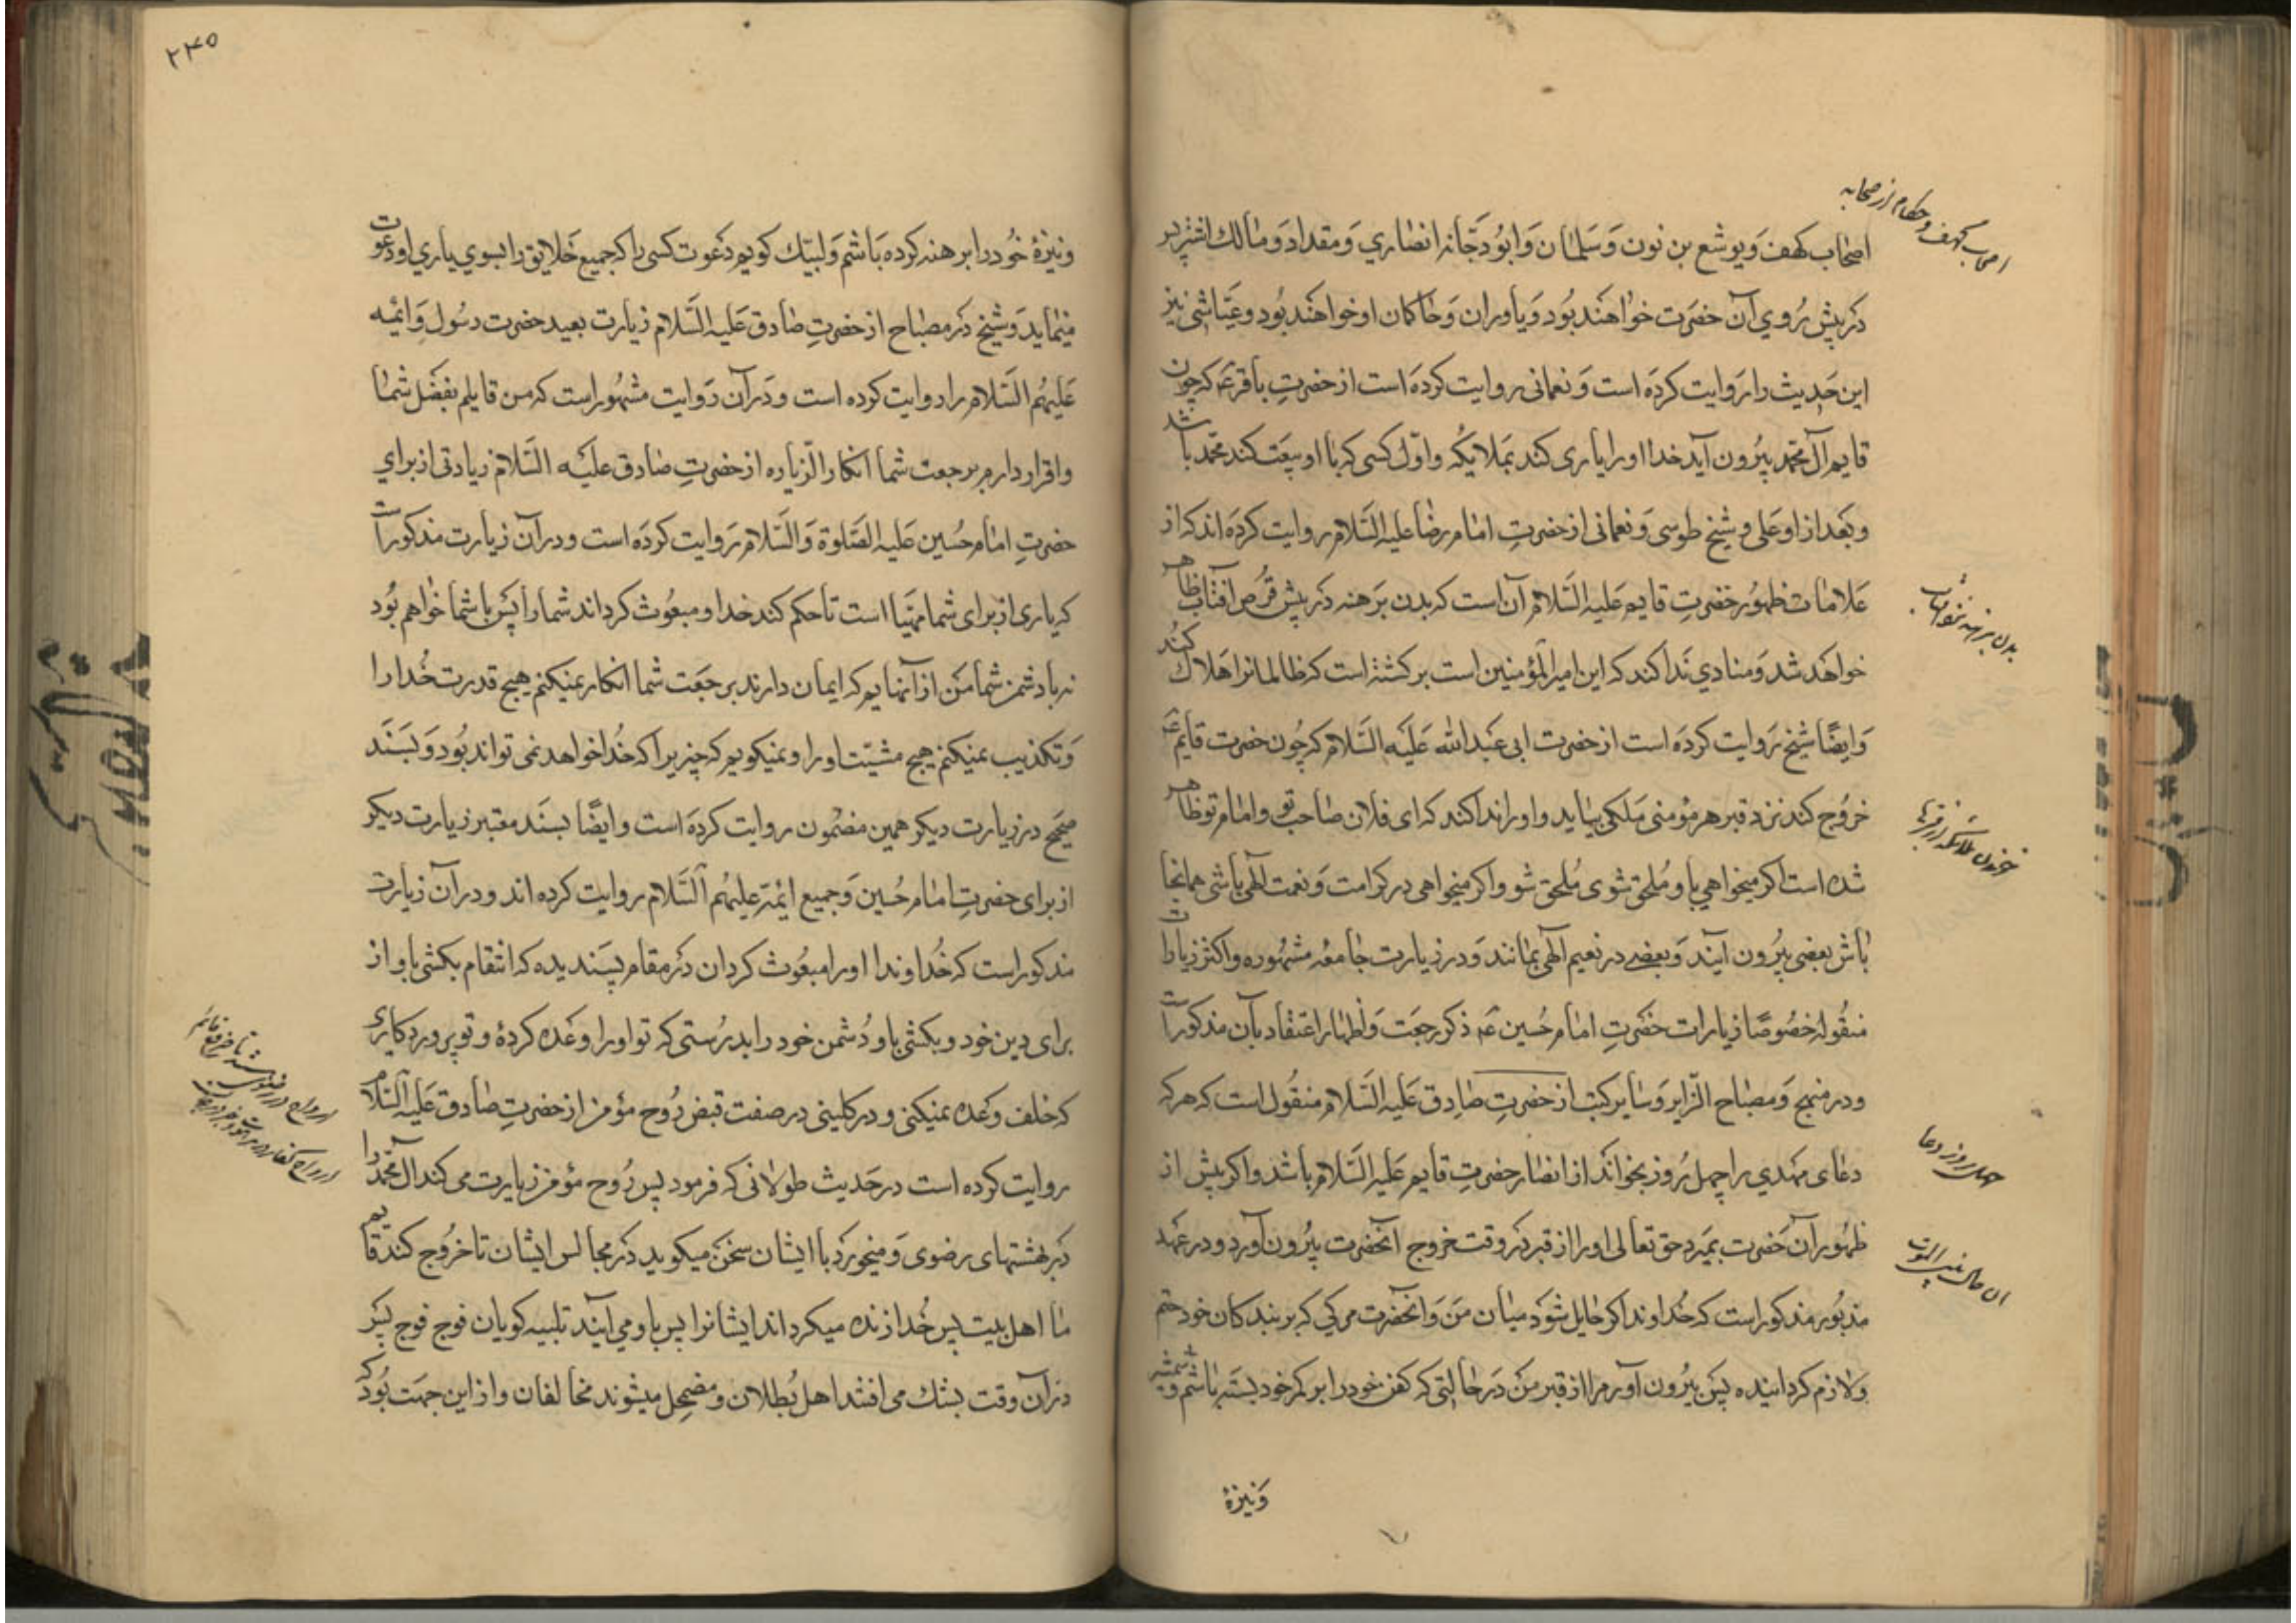 اصحاب کهف و یوشع بن نون و سلمان و ابو دجّانه انصاري و مقداد و مالك اشتر پس
در پیش رُوي آن حضرت خواهند بود و یاوران و حاکمان او خواهند بود و عیّاشی نیز
این حدیث را روایت کرده است و نعمانی روایت کرده است از حضرتِ باقر عَه که چون
قایم آل محمد بیرون آید خدا او را یاری کند بملایکه و اوّل کسی که با او بیعت کند محمد باشد
و بعد از او علی و شیخ طوسی و نعمانی از حضرتِ امام رضا علیه السّلام روایت کرده اند که از
علامات ظهور حضرتِ قایم علیه السّلام آن است که بدن برهنه در پیش قُرص افتاب ظاهر
خواهد شد و منادي ندا کند که این امیر المؤمنین است برکشته است که ظالمانرا هلاك کند
و ایضًا شیخ روایت کرده است از حضرت ابی عبد الله علیه السّلام که چون حضرت قایم عَه
خروج کند نزد قبر هر مؤمنی ملکی بیاید و او را ندا کند که ای فلان صاحب تو و امام تو ظاهر
شده است اکر میخواهي باو ملحق شوی مُلحق شو و اکر میخواهی در کرامت و نعمت آلهی باشی همانجا
باش بعضی بیرون آیند و بعضے در نعیم آلهی بمانند و در زیارت جامعه مشهوره و اکثر زیارات
منقوله خصوصًا زیارات حضرتِ امام حُسین عَه ذکر رجعت و اظهار اعتقاد بآن مذکور است
و در منهج و مصباح الزّایر و سایر کتب از حضرتِ صادق علیه السّلام منقول است که هر که
دعای مهدي را چهل روز بخواند از انصار حضرتِ قایم علیه السّلام باشد و اکر پیش از
ظهور آن حضرت بمیرد حق تعالی او را از قبر در وقت خروج آنحضرت بیرون آورد و در عهد
مذبور مذکور است که خُداوندا کر حایل شود میان من و انحضرت مرکی که بر بندکان خود حتم
و لازم کردانیده پس بیرون آور مرا از قبر من در حالتی که کفن خود را بر کمر خود بسته باشم و شمشیر
و نیزۀ
اصحاب کهف و حکام از صحابه
بدن برهنه نزد افتاب
چهل روز دعا
۲۳۵
و نیزۀ خود را برهنه کرده باشم و لبیّك کویم دعوت کسی را که جمیع خلایق را بسوي یاري او دعوت
مینماید و شیخ در مصباح از حضرتِ صادق علیه السّلام زیارت بعید حضرت رسُول و ائمه
علیهُم السّلام را روایت کرده است و در آن روایت مشهور است که من قایلم بفضل شما
و اقرار دارم برجعت شما انکار الزیاره از حضرتِ صادق علیه السّلام زیادتی از برای
حضرتِ امام حُسین علیه الصّلوة و السّلام روایت کرده است و در آن زیارت مذکور است
که یاری از برای شما مهیّا است تا حکم کند خدا و مبعُوث کرداند شما را پس با شما خواهم بُود
نه با دشمن شما من از آنهایم که ایمان دارند برجعت شما انکار نمیکنم هیچ قدرت خُدا را
و تکذیب نمیکنم هیچ مشیّت او را و نمیکویم که چیزیرا که خُدا خواهد نمی تواند بُود و بسند
صحیح در زیارت دیکر همین مضمون روایت کرده است و ایضًا بسند معتبر زیارت دیکر
از برای حضرتِ امام حُسین و جمیع ائمّه علیهُم السّلام روایت کرده اند و در آن زیارت
مذکور است که خُداوندا او را مبعُوث کردان در مقام پسندیده که انتقام بکشی باو از
برای دین خود و بکشی باو دُشمن خود را بدرستی که تو او را وعده کردۀ و تو پروردکاری
که خلف وعده نمیکنی و در کلینی در صفت قبض رُوح مؤمن از حضرتِ صادق علیه السّلام
روایت کرده است در حدیث طولانی که فرمود پس رُوح مؤمن زیارت می کند آل محمد را
در بهشتهای رضوی و میخورد با ایشان سخن میکوید در مجالس ایشان تا خروج کند قایم
ما اهل بیت پس خُدا زنده میکرداند ایشانرا پس باو می آیند تلبیه کویان فوج فوج پس
در آن وقت بشك می افتند اهل بُطلان و مضمحل میشوند مخالفان و از این جهت بُود که